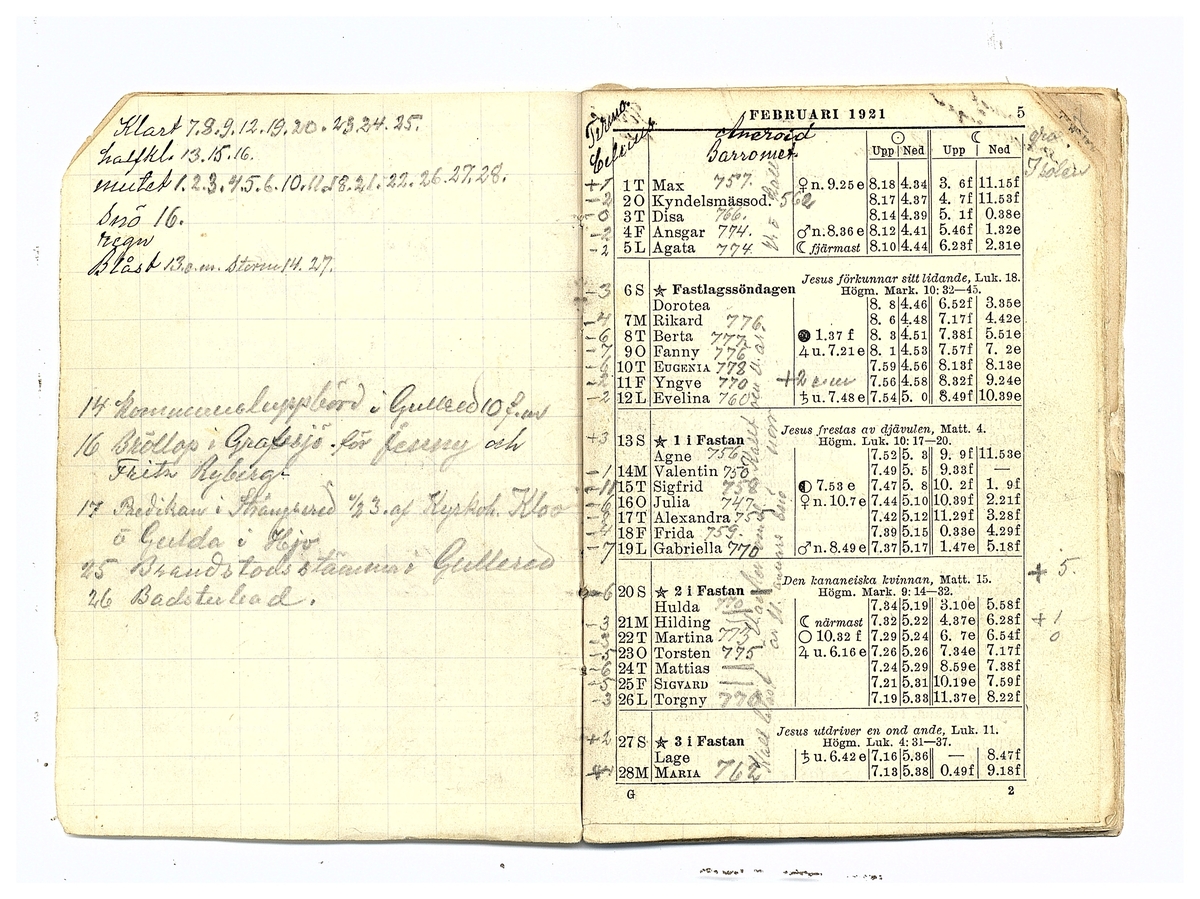 Klart 7.8.9.12.19.20.23.24.25.
halfkl. 13.15.16.
mulet 1.2.3.4.5.6.10.11.18.21.22.26.27.28.
Snö 16.
regn
Blåst 13 e.m. Storm 14.27.
14 Kommunaluppbörd i Gullered 10 f.m
16 Bröllop i Grafsjö för Jenny och
Fritz Ryberg
17 Predikan i Strängsered ½3 af Kyrkoh.
å Gulda i Hjo
25 Brandstodsstämma i Gullered
26
FEBRUARI 1921 5
Termo. Celsius
Aneroid
Barromet.
☉ ☾
Upp Ned Upp Ned
1 T Max 757. ♀ n. 9.25 e 8.18 4.34 3. 6f 11.15f
2 O Kyndelsmässod. 562 8.17 4.37 4. 7f 11.53f
3 T Disa 766. 8.14 4.39 5. 1f 0.38e
4 F Ansgar 774. ♂ n. 8.36 e 8.12 4.41 5.46f 1.32e
-2 5 L Agata 774 ☾ fjärmast 8.10 4.44 6.23f 2.31e
Jesus förkunnar sitt lidande, Luk. 18.
-3 6 S ★ Fastlagssöndagen Högm. Mark. 10: 32—45.
Dorotea 8. 8 4.46 6.52f 3.35e
7 M Rikard 776. 8. 6 4.48 7.17f 4.42e
8 T Berta 777. ● 1.37 f 8. 3 4.51 7.38f 5.51e
9 O Fanny 776 ♃ u. 7.21 e 8. 1 4.53 7.57f 7. 2e
10 T EUGENIA 778 7.59 4.56 8.13f 8.13e
11 F Yngve 770 +2 7.56 4.58 8.32f 9.24e
-2 12 L Evelina 760 ♄ u. 7.48 e 7.54 5. 0 8.49f 10.39e
Jesus frestas av djävulen, Matt. 4.
+3 13 S ★ 1 i Fastan Högm. Luk. 10: 17—20.
Agne 756 7.52 5. 3 9. 9f 11.53e
14 M Valentin 750 7.49 5. 5 9.33f —
15 T Sigfrid ◐ 7.53 e 7.47 5. 8 10. 2f 1. 9f
16 O Julia 747 ♀ n. 10.7 e 7.44 5.10 10.39f 2.21f
17 T Alexandra 7.42 5.12 11.29f 3.28f
18 F Frida 759. 7.39 5.15 0.33e 4.29f
19 L Gabriella 770 ♂ n. 8.49 e 7.37 5.17 1.47e 5.18f
+ 5.
Den kananeiska kvinnan, Matt. 15.
-6 20 S ★ 2 i Fastan Högm. Mark. 9: 14—32.
Hulda 770 7.34 5.19 3.10e 5.58f
21 M Hilding ☾ närmast 7.32 5.22 4.37e 6.28f +1
22 T Martina 775 ○ 10.32 f 7.29 5.24 6. 7e 6.54f 0
23 O Torsten 775 ♃ u. 6.16 e 7.26 5.26 7.34e 7.17f
24 T Mattias 7.24 5.29 8.59e 7.38f
25 F SIGVARD 7.21 5.31 10.19e 7.59f
26 L Torgny 770 7.19 5.33 11.37e 8.22f
Jesus utdriver en ond ande, Luk. 11.
+2 27 S ★ 3 i Fastan Högm. Luk. 4: 31—37.
Lage ♄ u. 6.42 e 7.16 5.36 — 8.47f
28 M MARIA 762 7.13 5.38 0.49f 9.18f
G 2